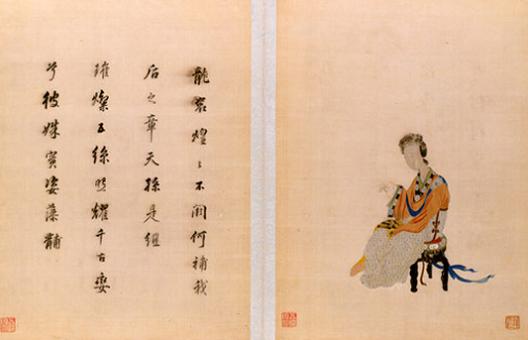 龍袞煌〻不闕何補我
后之章天孫是組
璀燦五絲照耀千古孌
兮彼姝實姿藻黼